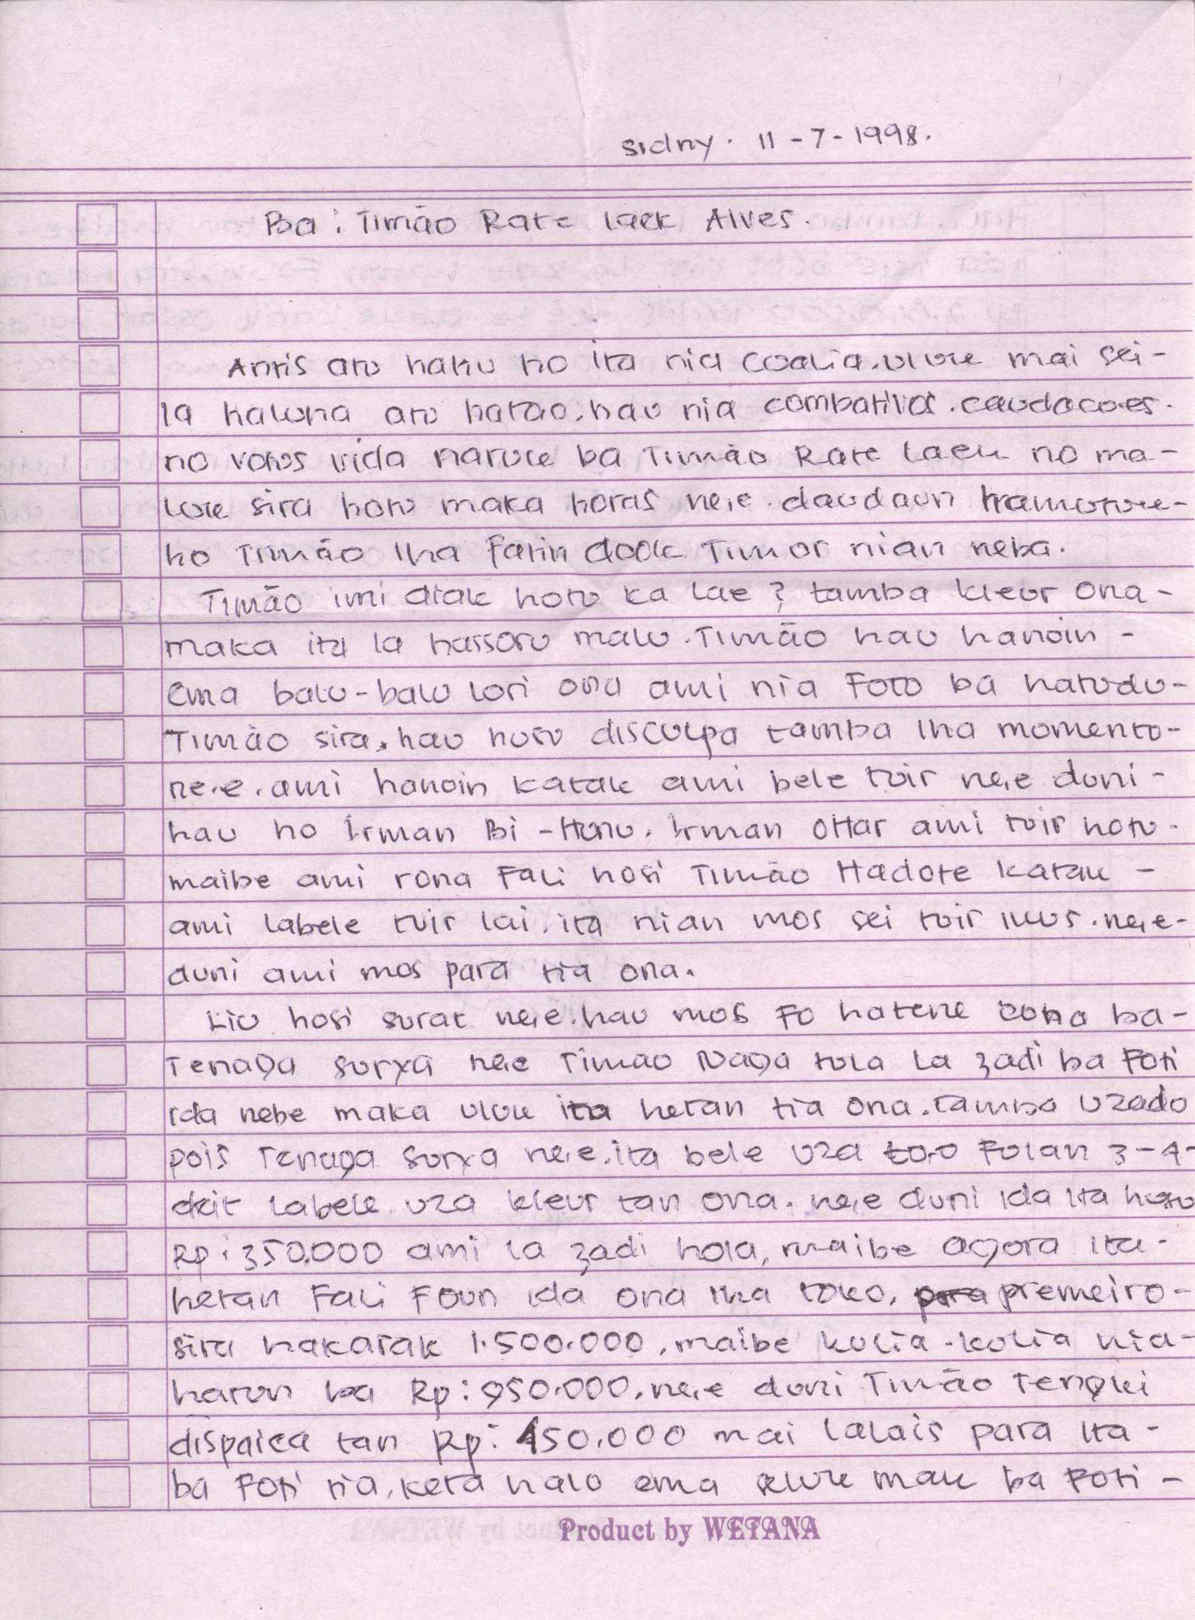 Sidny. 11-7-1998.
Ba: Timão Rate laek Alves.
Antis atu hahu ho ita nia coalia. uluk mai sei-
la haluha atu hatao. hau nia combativa. caudacoes.
no votos vida naruk ba Timão Rate Laek no ma-
luk sira hotu maka horas ne,e. daudaun hamutuk-
ho Timão Iha fatin dook Timor nian neba.
Timão imi diak hotu ka lae? tamba kleur ona-
maka ita la hassoru malu. Timão hau hanoin-
ema balu-balu lori ona ami nia Foto ba hatudu-
Timão sira, hau husu disculpa tamba Iha momento-
ne,e. ami hanoin katak ami bele tuir ne,e duni-
hau ho Irman Bi-Hunu. Irman Ottar ami tuir hotu.
maibe ami rona Fali hosi Timão Hadote katak -
ami labele tuir lai, ita nian mos sei tuir ikus. ne,e-
duni ami mos para tia ona.
Liu hosi surat ne,e. hau mos Fo hatene cona ba-
Tenaga surya ne,e Timao Naga tola La zadi ba Foti
ida nebe maka uluk ita hetan tia ona. tamba uzado
pois Tenaga surya ne,e. ita bele uza to,o Fulan 3-4-
deit labele uza kleur tan ona. ne,e duni ida ita husu
Rp: 350.000 ami la zadi hola, maibe agora ita-
hetan Fali Foun ida ona Iha toko, premeiro-
sira hakarak 1.500.000, maibe kolia-kolia nia-
harun ba Rp: 950.000, ne,e duni Timão Tenqki
dispaica tan Rp: 150.000 mai lalais para Ita-
ba Foti tia, keta halo ema uluk mak ba Foti -
Product by WETANA